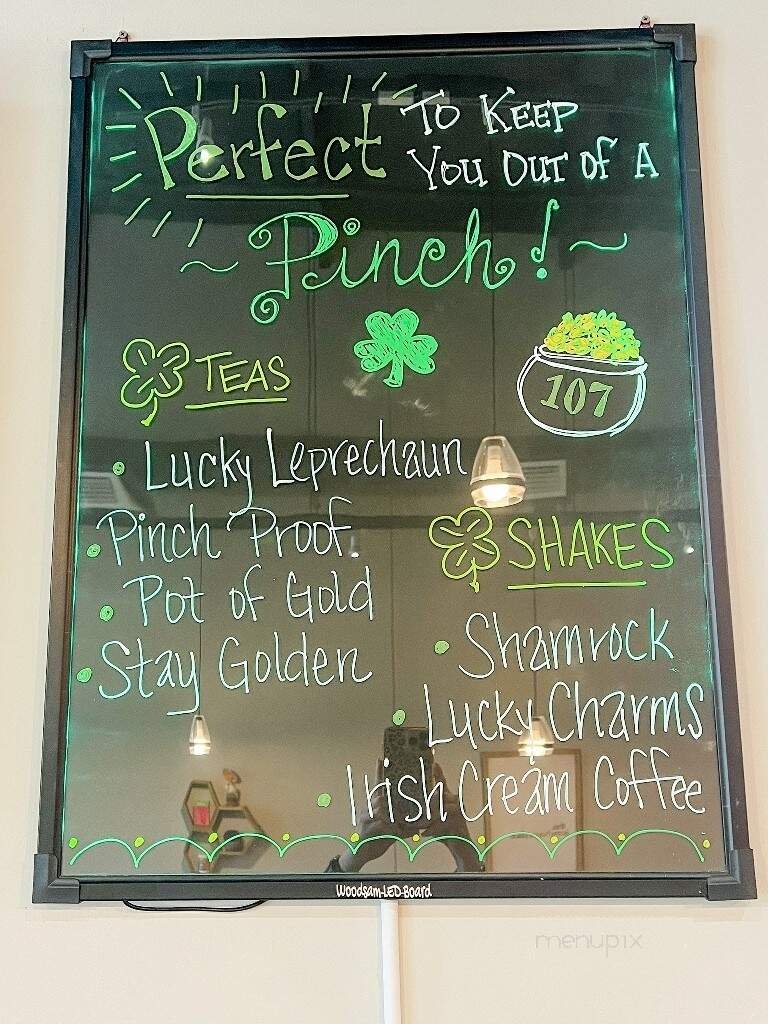 Perfect To Keep
You Out of A
Pinch!
TEAS
107
• Lucky Leprechaun
• Pinch Proof
• Pot of Gold
• Stay Golden
SHAKES
• Shamrock
• Lucky Charms
• Irish Cream Coffee
Woodsam-LED-Board
menupix